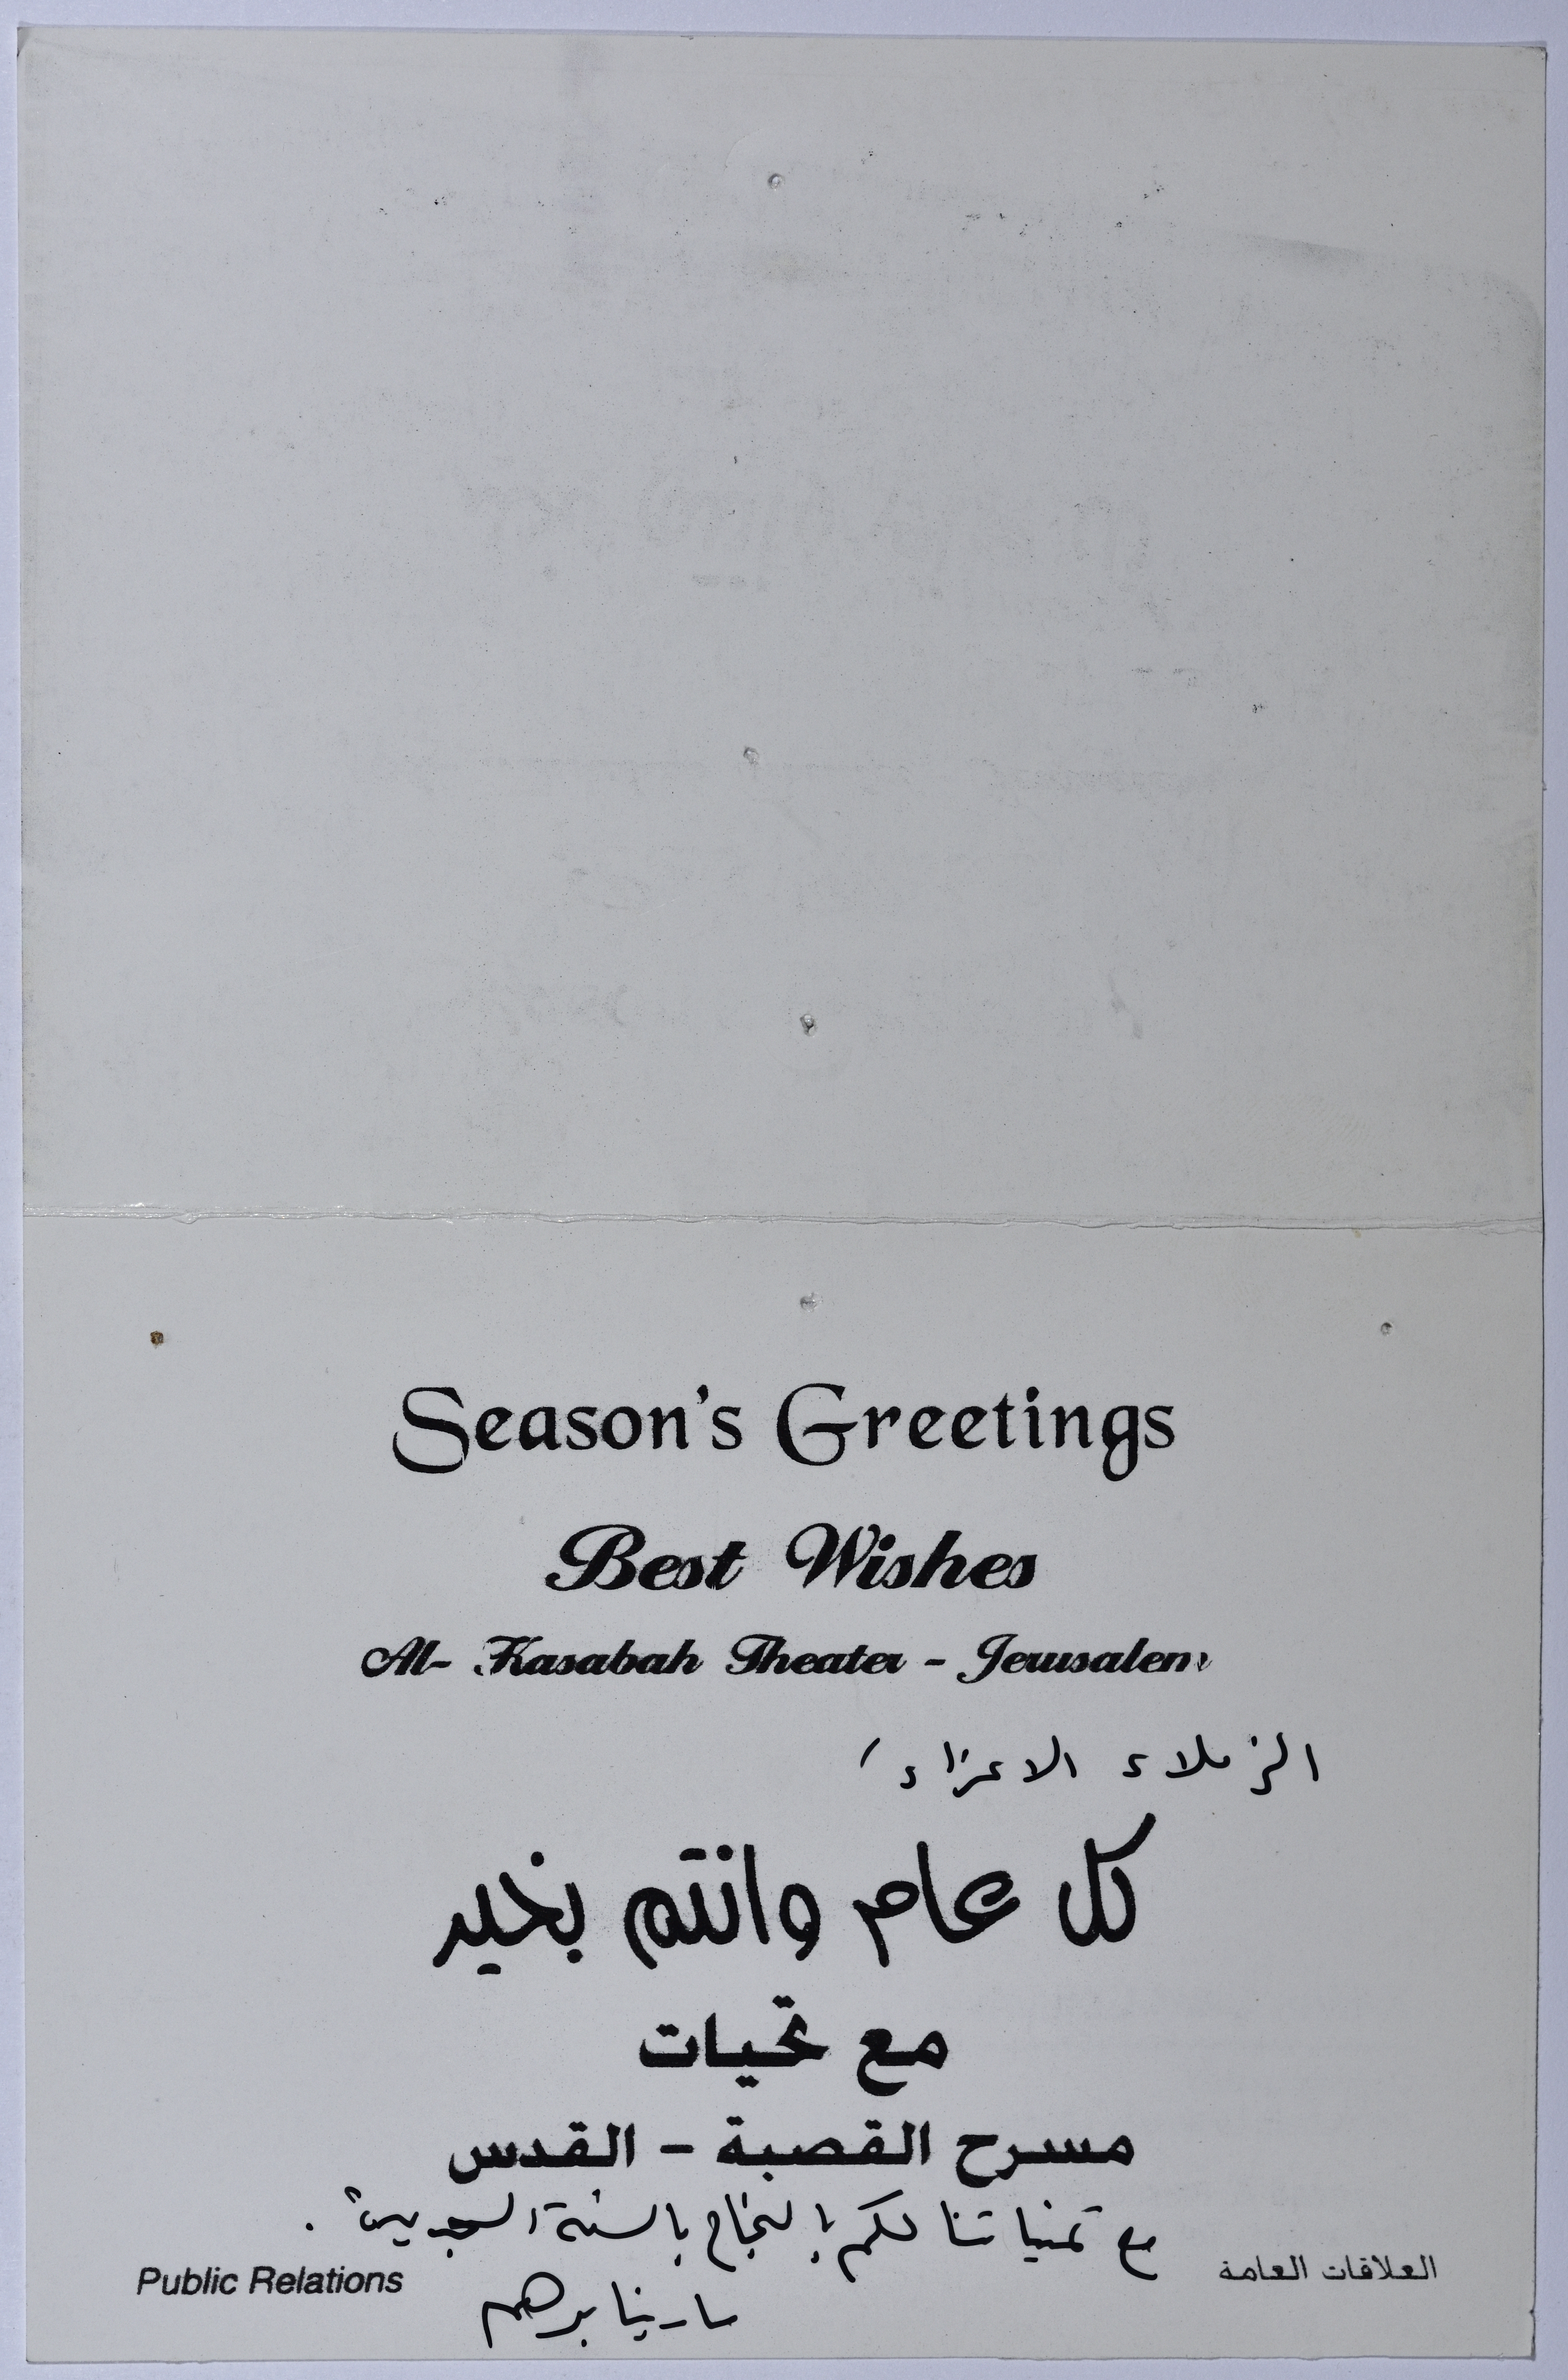 Season's Greetings
Best Wishes
Al- Kasabah Theater - Jerusalem
الزملاء الاعزاء،
كل عام وانتم بخير
مع تحيات
مسرح القصبة - القدس
مع تمنياتنا لكم بالنجاح بالسنة الجديدة.
العلاقات العامة
Public Relations
سارينا برهم